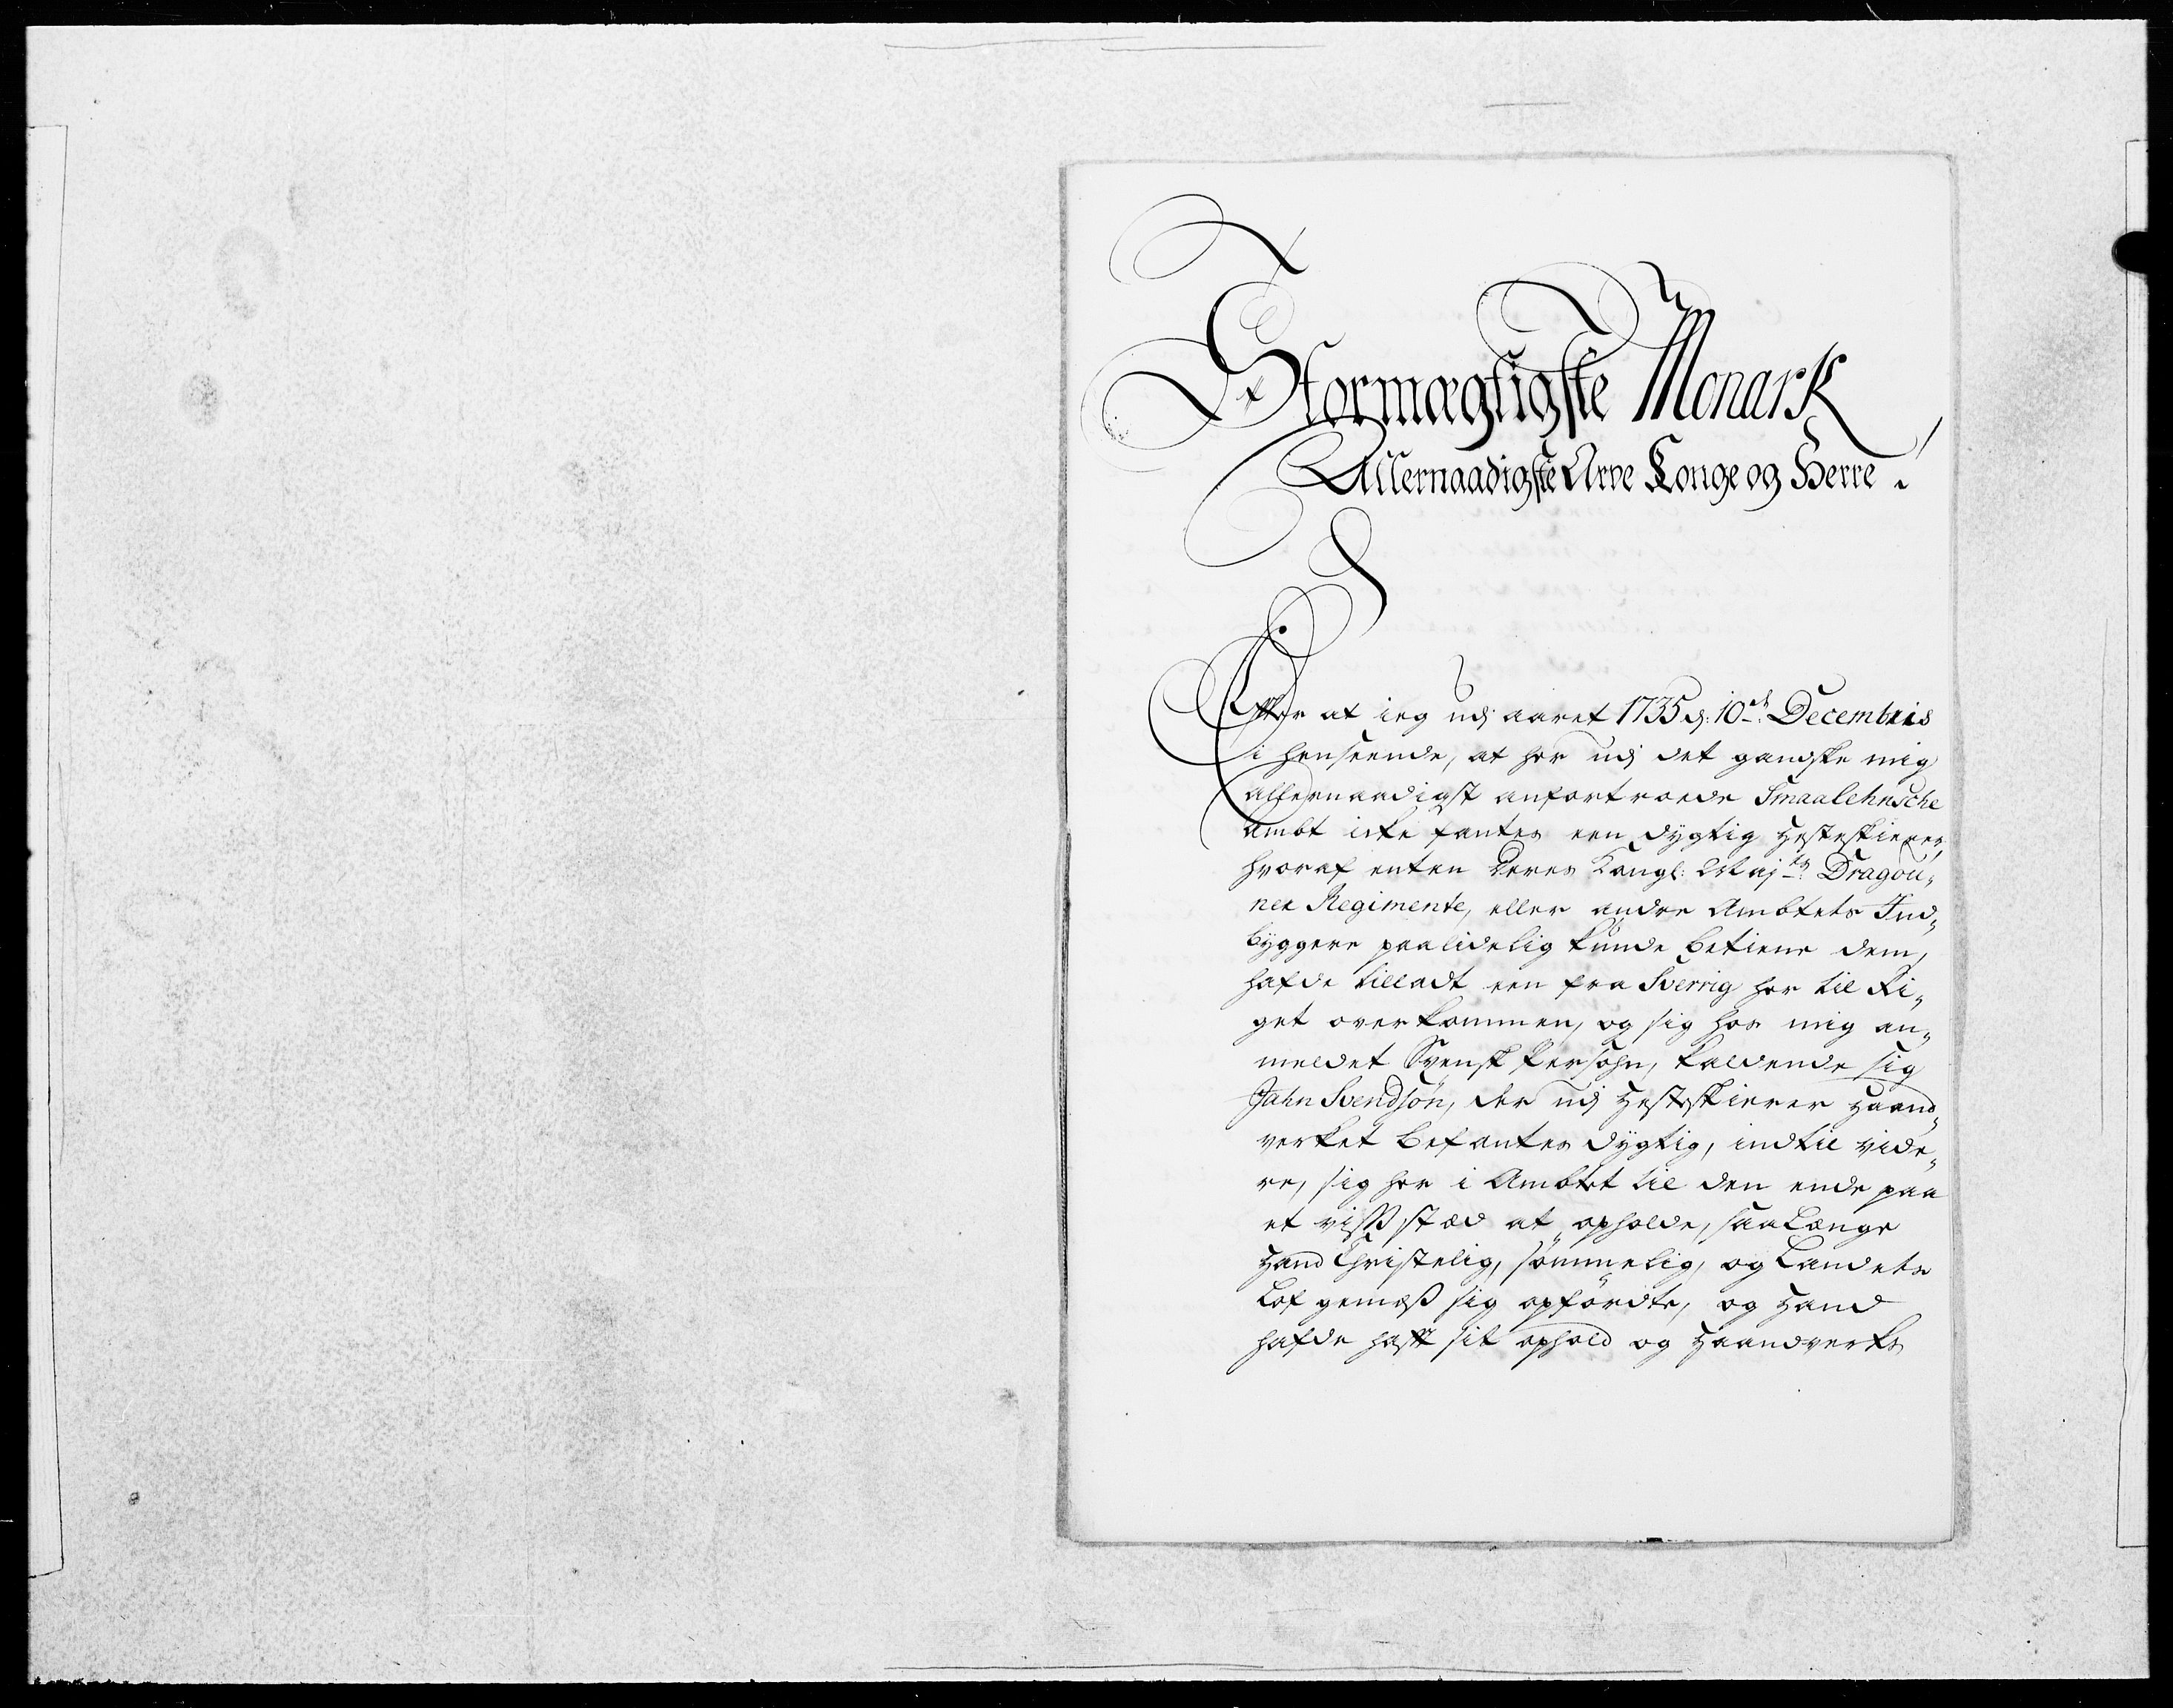 Stormægtigste Monark
Allernaadigste Arve Konge og Herre.
Efter at ieg udj aaret 1735 d: 10de Decembris
i henseende, at her udj det gandske mig
allernaadigst anfortroede Smaalehnsche
Ambt icke fantes een dygtig Hesteskierer,
hvoraf enten Deres Kongl: Maj:ts Dragou„
ner Regimente, eller andre Ambtets Ind„
byggere paalidelig kunde betiene dem,
hafde tilladt een fra Sverrig her til Ri„
get overkommen, og sig hos mig an„
meldet Svensk Persohn, kaldende sig
Jahn Svendsön, der udj Hesteskierer Haand„
verket befantes dygtig, indtil vide„
re, sig her i Ambtet til den ende paa
et visse stæd at opholde, saalænge
Hand Christelig, sømmelig, og Landets
Lof gemæs sig opførdte, og Hand
hafde haft sit ophold og Haandverks